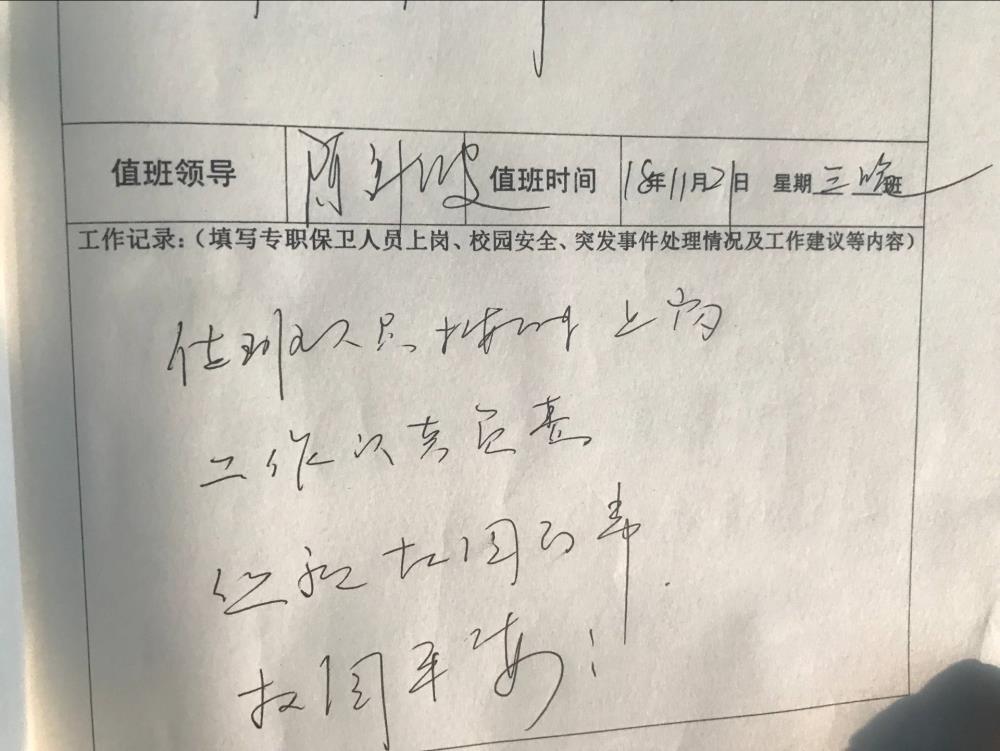 值班领导 值班时间 18年11月21日 星期三 晚班
工作记录：（填写专职保卫人员上岗、校园安全、突发事件处理情况及工作建议等内容）
值班人员按时上岗
工作认真负责
校园
校园平安！